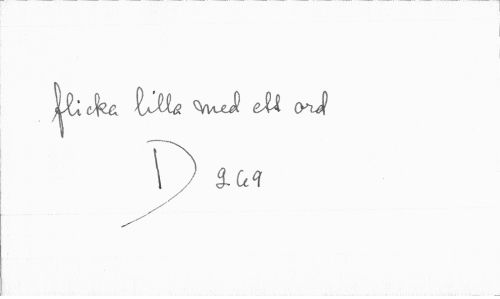 flicka lilla med ett ord
D 269